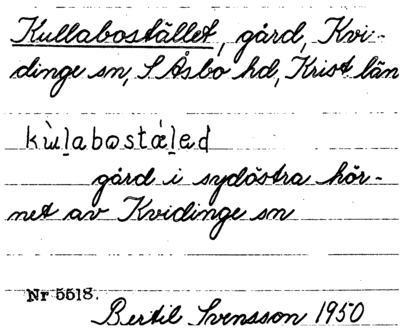 Kullabostället, gård, Kvi-
dinge sn, S Åsbo hd, Krist län
kùl̲abostǽl̲ed
gård i sydöstra hör-
net av Kvidinge sn
Nr 5518.
Bertil Svensson 1950